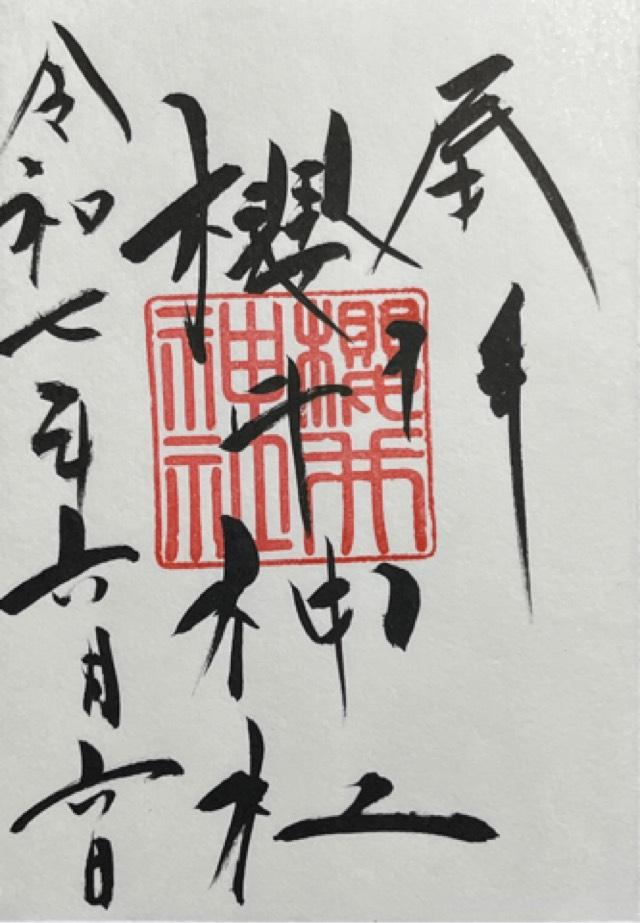 奉拝
櫻木神社
令和七年六月六日
櫻木
神社